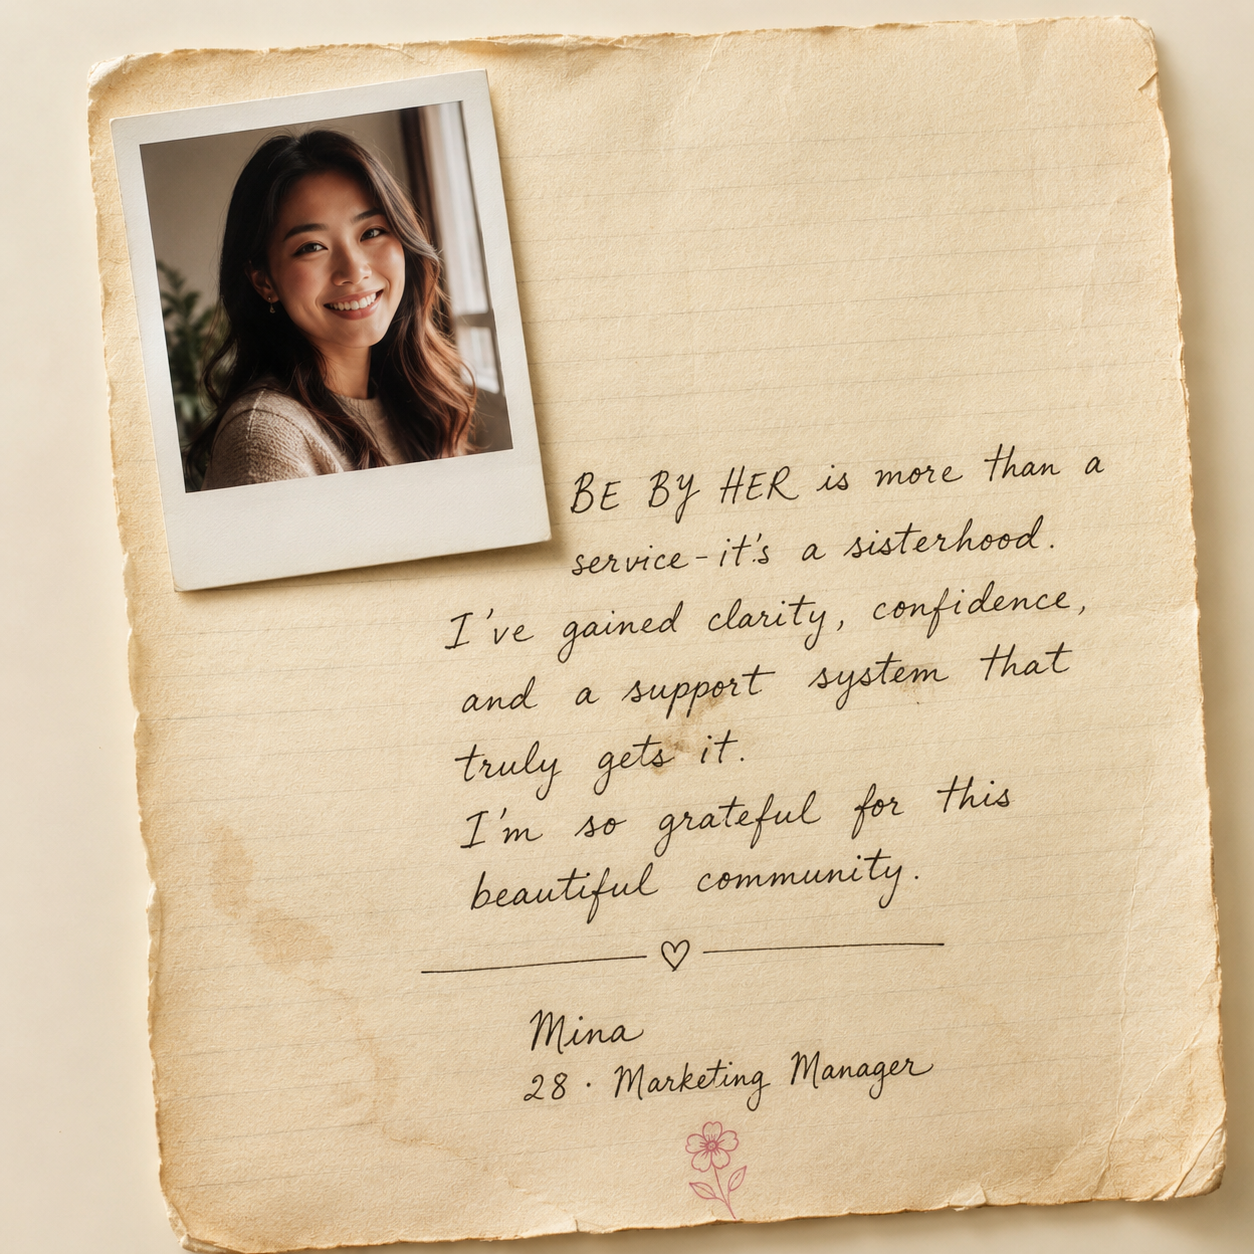 BE BY HER is more than a
service-it's a sisterhood.
I've gained clarity, confidence,
and a support system that
truly gets it.
I'm so grateful for this
beautiful community.
Mina
28 · Marketing Manager